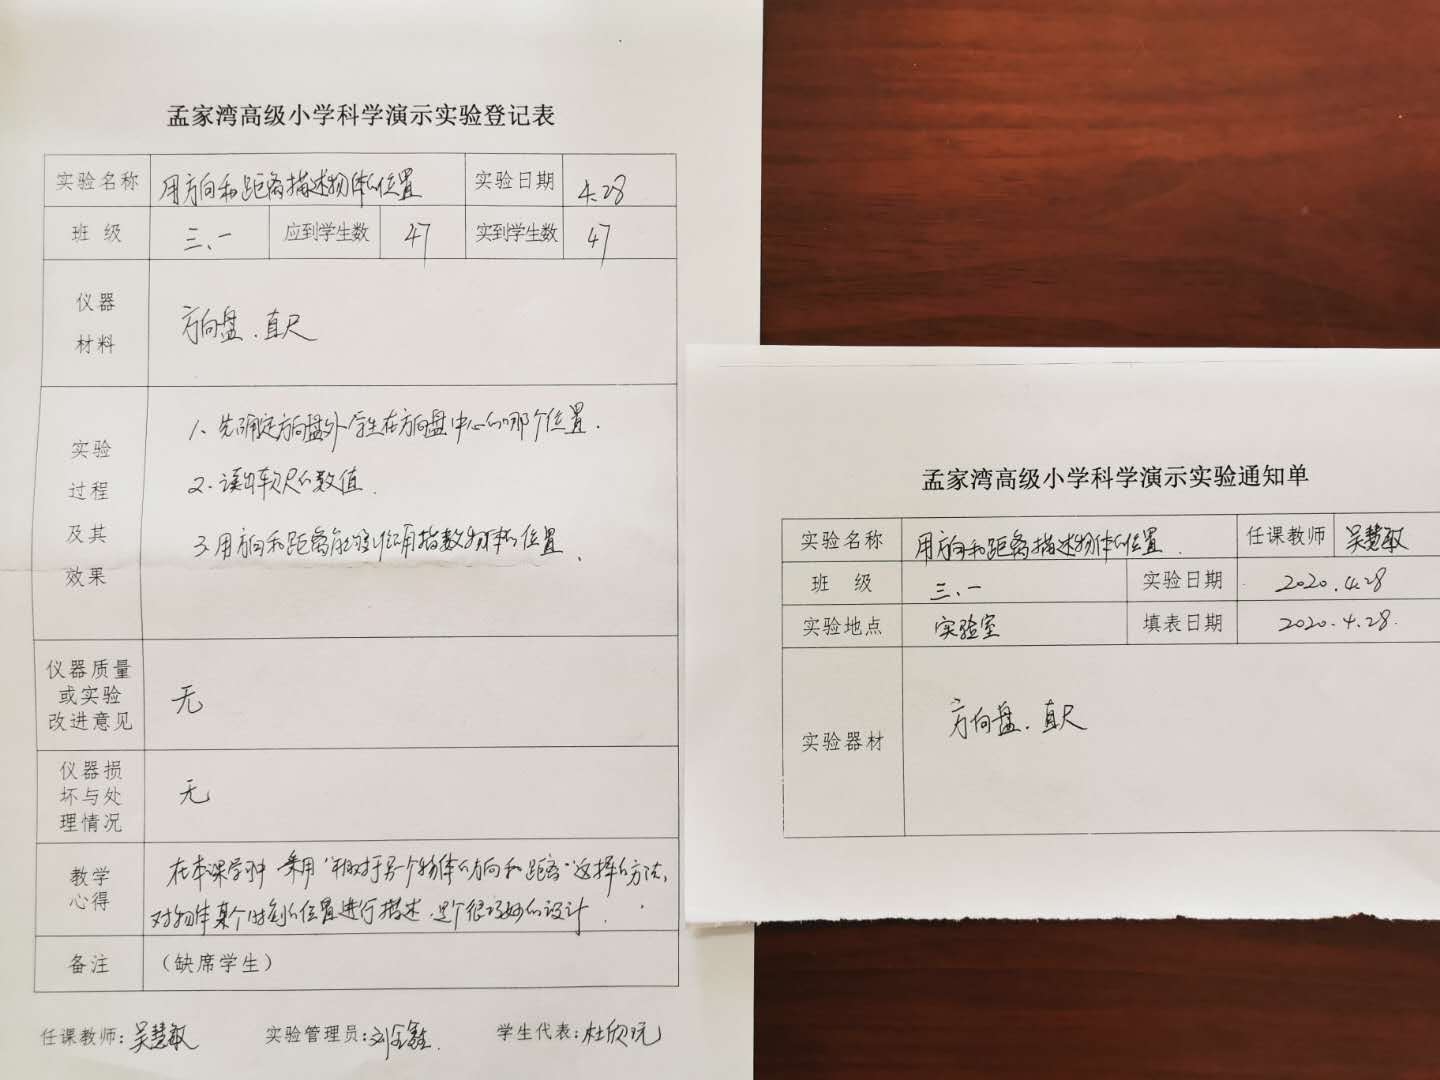 孟家湾高级小学科学演示实验登记表
实验名称 用方向和距离描述物体的位置 实验日期 4.28
班级 三、一 应到学生数 47 实到学生数 47
仪器
材料
方向盘、直尺
实验
过程
及其
效果
1、先确定方向盘外学生在方向盘中心的哪个位置.
2、读出软尺的数值.
3、用方向和距离能够 物体的位置.
仪器质量
或实验
改进意见
无
仪器损
坏与处
理情况
无
教学
心得
在本课学习中采用"相对于另一个物体的方向和距离"这样的方法,
对物体某个时刻的位置进行描述,是个很巧妙的设计.
备注 (缺席学生)
任课教师:吴慧敏 实验管理员:刘金鑫 学生代表:杜欣
孟家湾高级小学科学演示实验通知单
实验名称 用方向和距离描述物体的位置. 任课教师 吴慧敏
班级 三、一 实验日期 2020.4.28
实验地点 实验室 填表日期 2020.4.28.
实验器材
方向盘、直尺